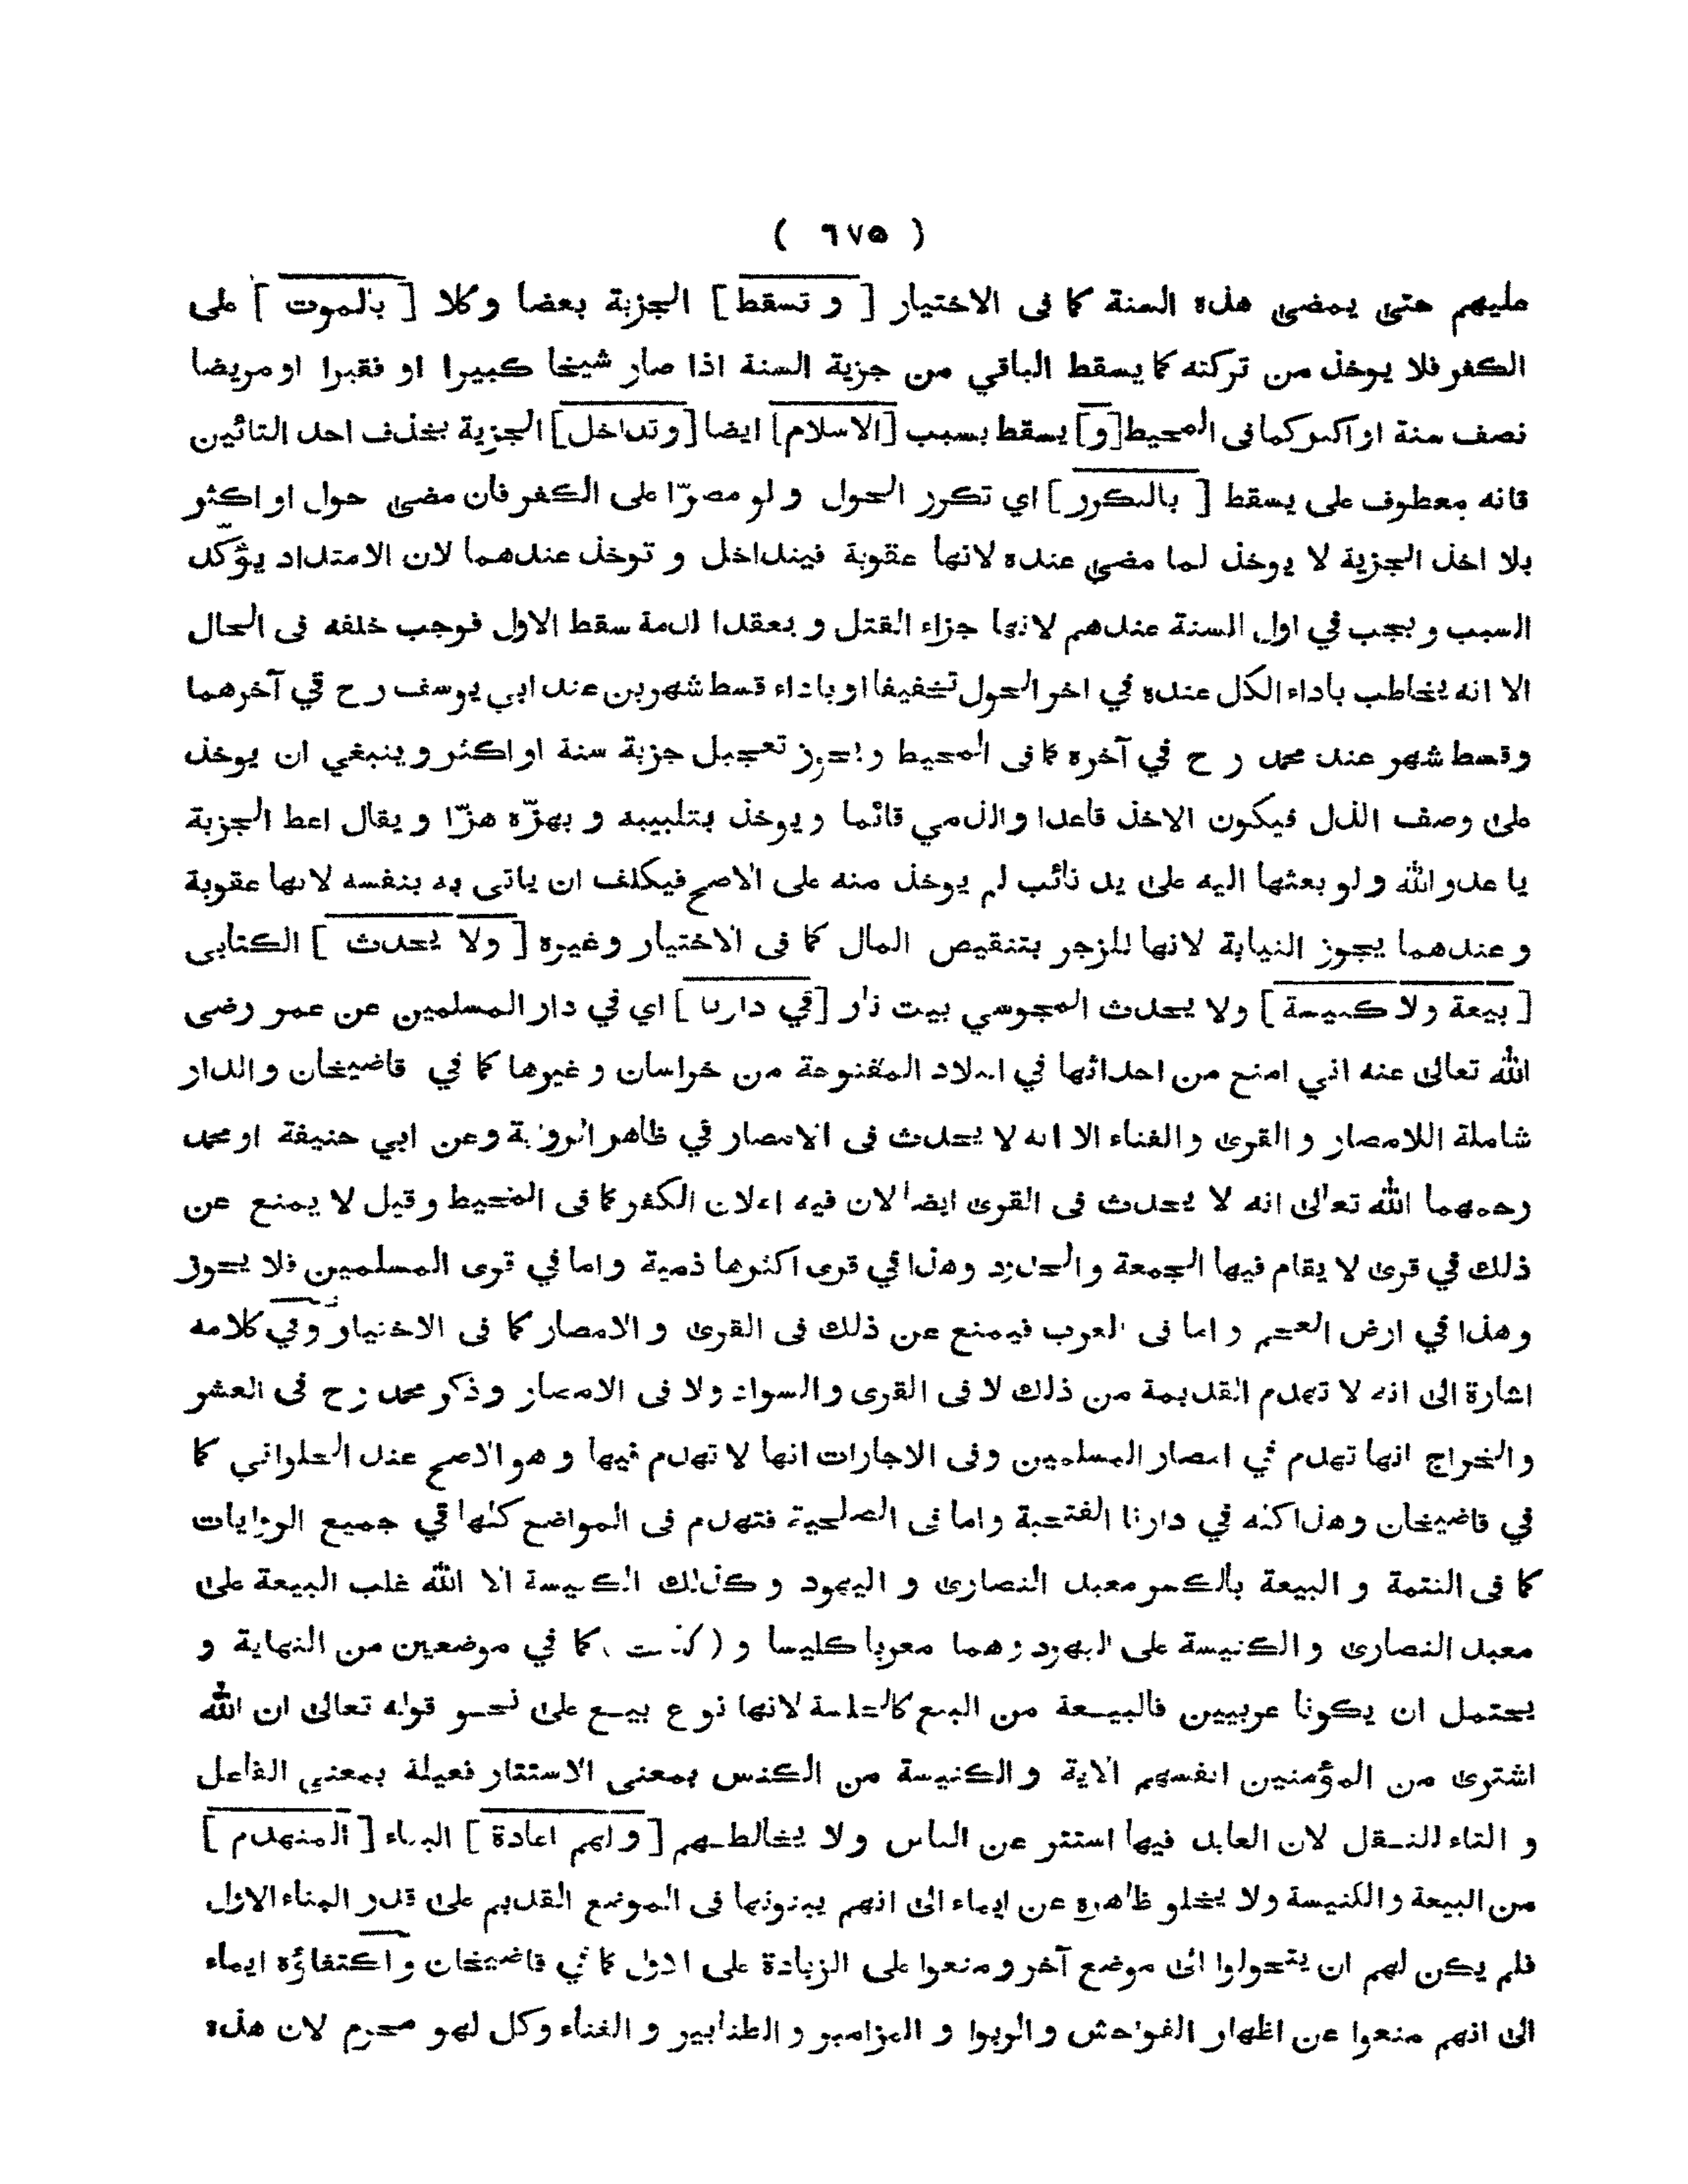 ( ٦٧٥ )
عليهم حتى يمضى هذه السنة كما فى الاختيار [ و تسقط ] الجزية بعضا وكلا [ بالموت ] على
الكفر فلا يوخذ من تركته كما يسقط الباقي من جزية السنة اذا صار شيخا كبيرا او فقيرا او مريضا
نصف سنة او اكثر كما فى المحيط [و] يسقط بسبب [الاسلام] ايضا [وتداخل] الجزية بحذف احد التائين
فانه معطوف على يسقط [ بالتكرر ] اي تكرر الحول و لو مصرّا على الكفر فان مضى حول او اكثر
بلا اخذ الجزية لا يوخذ لما مضى عنده لانها عقوبة فيتداخل و توخذ عندهما لان الامتداد يؤكّد
السبب و يجب في اول السنة عندهم لانها جزاء القتل و بعقد الذمة سقط الاول فوجب خلفه فى الحال
الا انه يخاطب باداء الكل عنده في اخر الحول تخفيفا او باداء قسط شهرين عند ابي يوسف رح في آخرهما
وقسط شهر عند محمد ر ح في آخره كما فى المحيط ويجوز تعجيل جزية سنة او اكثر وينبغي ان يوخذ
على وصف الذل فيكون الاخذ قاعدا والذمي قائما ويوخذ بتلبيبه و يهزّه هزّا و يقال اعط الجزية
يا عدو الله ولو بعثها اليه على يد نائب لم يوخذ منه على الاصح فيكلف ان ياتى به بنفسه لانها عقوبة
وعندهما يجوز النيابة لانها للزجر بتنقيص المال كما فى الاختيار وغيره [ ولا يحدث ] الكتابى
[ بيعة ولا كنيسة ] ولا يحدث المجوسي بيت نار [في دارنا] اي في دار المسلمين عن عمر رضى
الله تعالى عنه اني امنع من احداثها في البلاد المفتوحة من خراسان و غيرها كما في قاضيخان والدار
شاملة اللامصار و القرى والفناء الا انه لا يحدث فى الامصار في ظاهر الرواية وعن ابي حنيفة او محمد
رحمهما الله تعالى انه لا يحدث فى القرى ايضا لان فيه اعلان الكفر كما فى المحيط و قيل لا يمنع عن
ذلك في قرى لا يقام فيها الجمعة والحدود وهذا في قرى اكثرها ذمية واما في قرى المسلمين فلا يجوز
وهذا في ارض العجم و اما فى العرب فيمنع عن ذلك فى القرى و الامصار كما فى الاختيار وفي كلامه
اشارة الى انه لا تهدم القديمة من ذلك لا فى القرى والسواد ولا فى الامصار وذكر محمد رح فى العشر
والخراج انها تهدم في امصار المسلمين وفى الاجارات انها لا تهدم فيها و هو الاصح عند الحلواني كما
في قاضيخان وهذا كله في دارنا الفتحية واما فى الصلحية فتهدم فى المواضع كلها في جميع الروايات
كما فى التتمة و البيعة بالكسر معبد النصارى و اليهود و كذلك الكنيسة الا الله غلب البيعة على
معبد النصارى والكنيسة على اليهود وهما معربا كليسا و ( كنشت ) كما في موضعين من النهاية و
يحتمل ان يكونا عربيين فالبيعة من البيع كالجلسة لانها نوع بيع على نحو قوله تعالى ان الله
اشترى من المؤمنين انفسهم الاية والكنيسة من الكنس بمعنى الاستتار فعيلة بمعنى الفاعل
و التاء للنقل لان العابد فيها استتر عن الناس ولا يخالطهم [ ولهم اعادة ] البناء [ المنهدم ]
من البيعة والكنيسة ولا يخلو ظاهره عن ايماء الى انهم يبنونها فى الموضع القديم على قدر البناء الاول
فلم يكن لهم ان يتحولوا الى موضع آخر ومنعوا على الزيادة على الاول كما في قاضيخان واكتفاؤه ايماء
الى انهم منعوا عن اظهار الفواحش والربوا و المزامير و الطنابير و الغناء وكل لهو محرم لان هذه